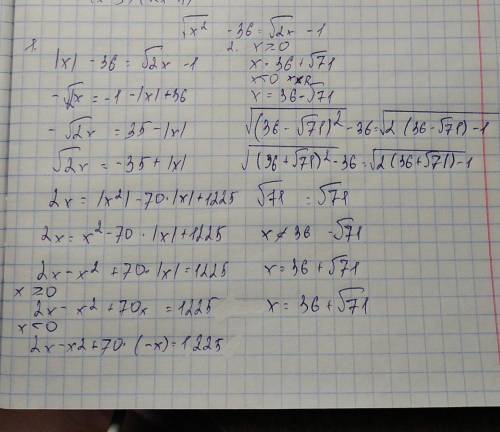 √x² - 36 = √2x - 1
1.
|x| - 36 = √2x - 1
-√x = -1 - |x| + 36
-√2x = 35 - |x|
√2x = -35 + |x|
2x = |x²| - 70·|x| + 1225
2x = x² - 70·|x| + 1225
2x - x² + 70·|x| = 1225
x ≥ 0
2x - x² + 70x = 1225
x < 0
2x - x2 + 70·(-x) = 1225
2. x ≥ 0
x = 36 + √71
x < 0
x = 36 - √71
√(36 - √71)² - 36 = √2(36 - √71) - 1
√(36 + √71)² - 36 = √2(36 + √71) - 1
√71 = √71
x ≠ 36 - √71
x = 36 + √71
x = 36 + √71